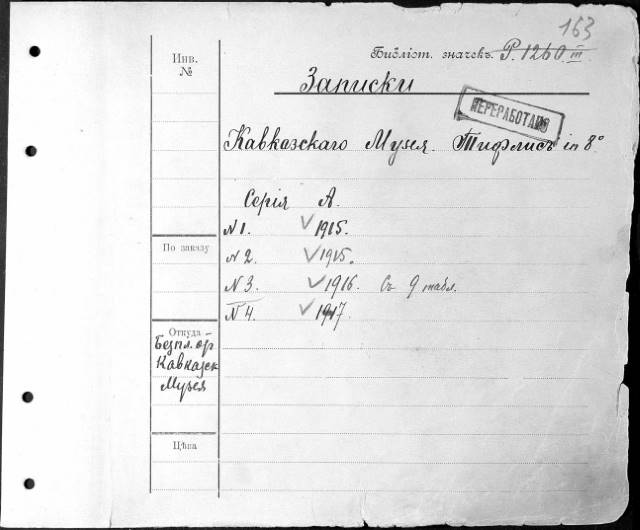 163
Инв. №
Библіот. значекъ. P. 1260 III
Записки
ПЕРЕРАБОТАНО
Кавказскаго Музея. Тифлисъ in 8°
Серія А.
N 1. ✓ 1915.
N 2. ✓ 1915.
По заказу
N 3. ✓ 1916. Съ 9 табл.
N 4. ✓ 1917.
Откуда
Безпл. от
Кавказск
Музея
Цѣна